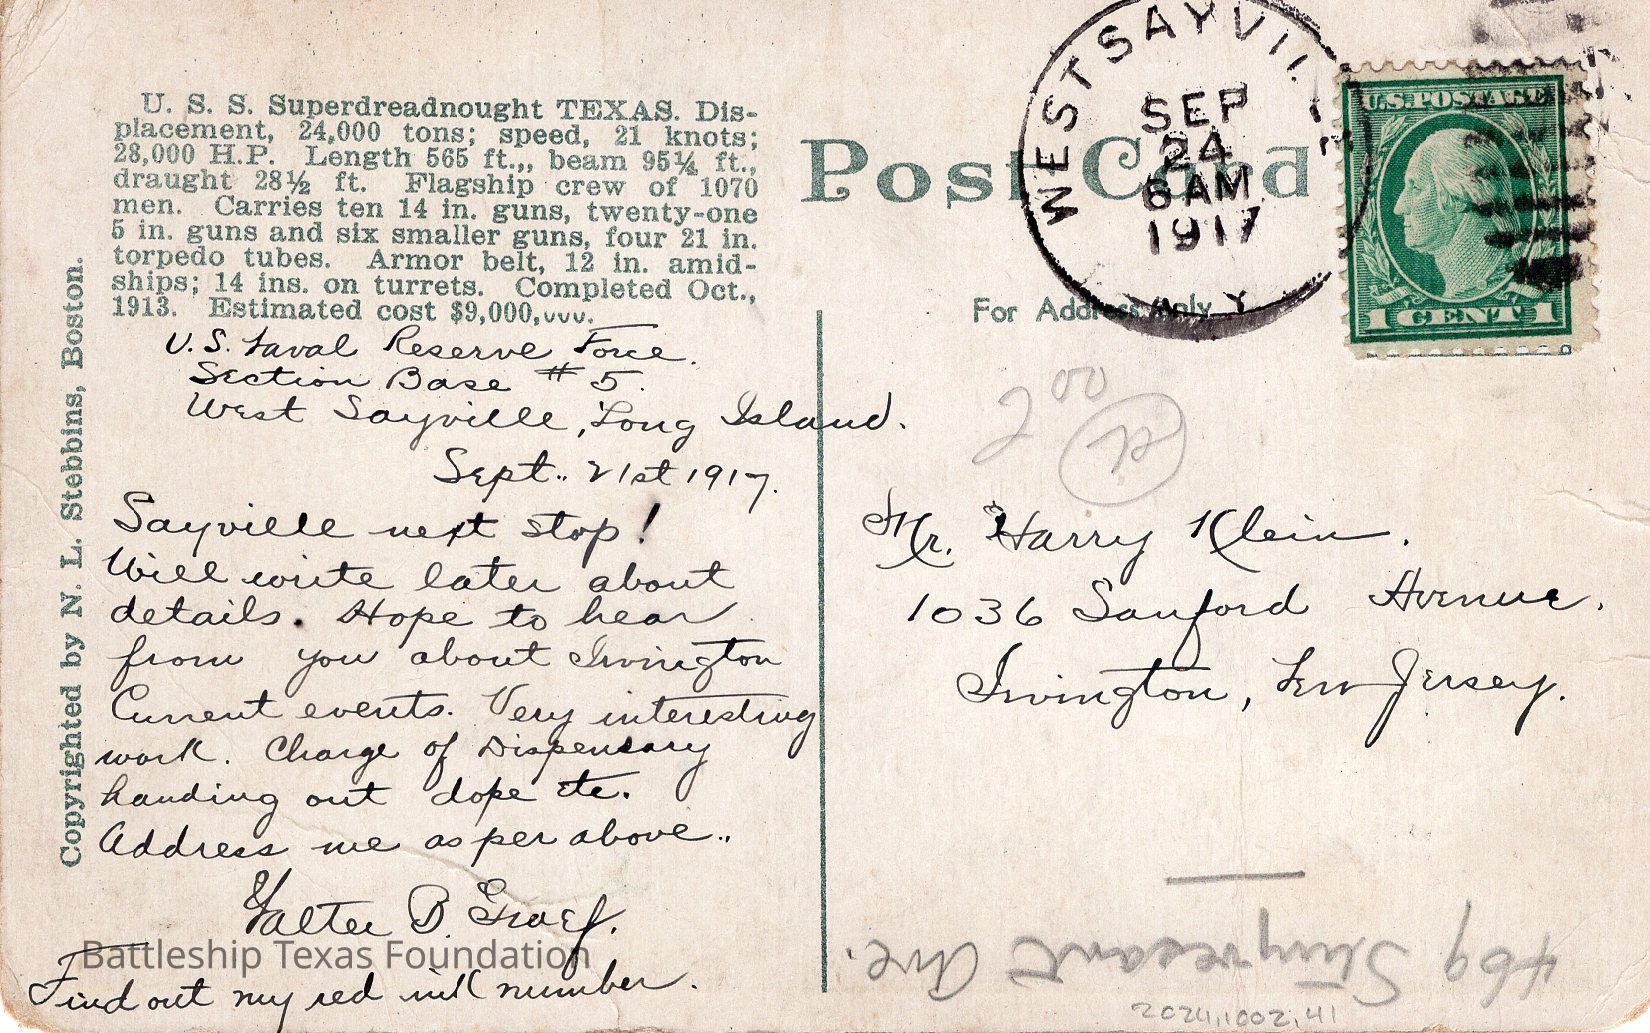 U. S. S. Superdreadnought TEXAS. Dis-
placement, 24,000 tons; speed, 21 knots;
28,000 H.P. Length 565 ft.,, beam 95¼ ft.,
draught 28½ ft. Flagship crew of 1070
men. Carries ten 14 in. guns, twenty-one
5 in. guns and six smaller guns, four 21 in.
torpedo tubes. Armor belt, 12 in. amid-
ships; 14 ins. on turrets. Completed Oct.,
1913. Estimated cost $9,000,000.
Copyrighted by N. L. Stebbins, Boston.
U.S. Naval Reserve Force.
Section Base # 5.
West Sayville, Long Island.
Sept.. 21st 1917.
Sayville next stop!
Will write later about
details. Hope to hear
from you about Irvington
Current events. Very interesting
work. Charge of Dispensary
handing out dope etc.
Address me as per above..
Walter B.
Find out my red ink number.
Battleship Texas Foundation
Post Card
For Address Only
WEST SAYVILLE
SEP
24
6 AM
1917
N Y
U.S. POSTAGE
1 CENT 1
2 00
Mr. Harry Klein.
1036 Sanford Avenue.
Irvington, New Jersey.
469 Stuyvesant Ave.
2024.1002.41